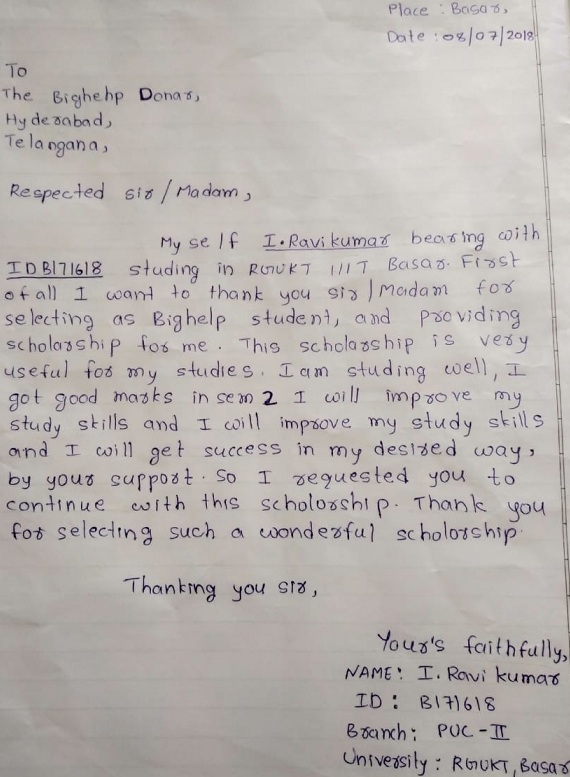 Place : Basar,
Date : 08/07/2018
To
The Bighehp Donar,
Hyderabad,
Telangana,
Respected sir / Madam,
My self I. Ravi kumar bearing with
ID B171618 studing in RGUKT IIIT Basar. First
of all I want to thank you sir / Madam for
selecting as Bighelp student, and providing
scholarship for me. This scholarship is very
useful for my studies. I am studing well, I
got good marks in sem 2 I will improve my
study skills and I will improve my study skills
and I will get success in my desired way,
by your support. So I requested you to
continue with this scholorship. Thank you
for selecting such a wonderful scholorship.
Thanking you sir,
Your's faithfully,
NAME: I. Ravi kumar
ID : B171618
Branch: PUC-II
University : RGUKT, Basar